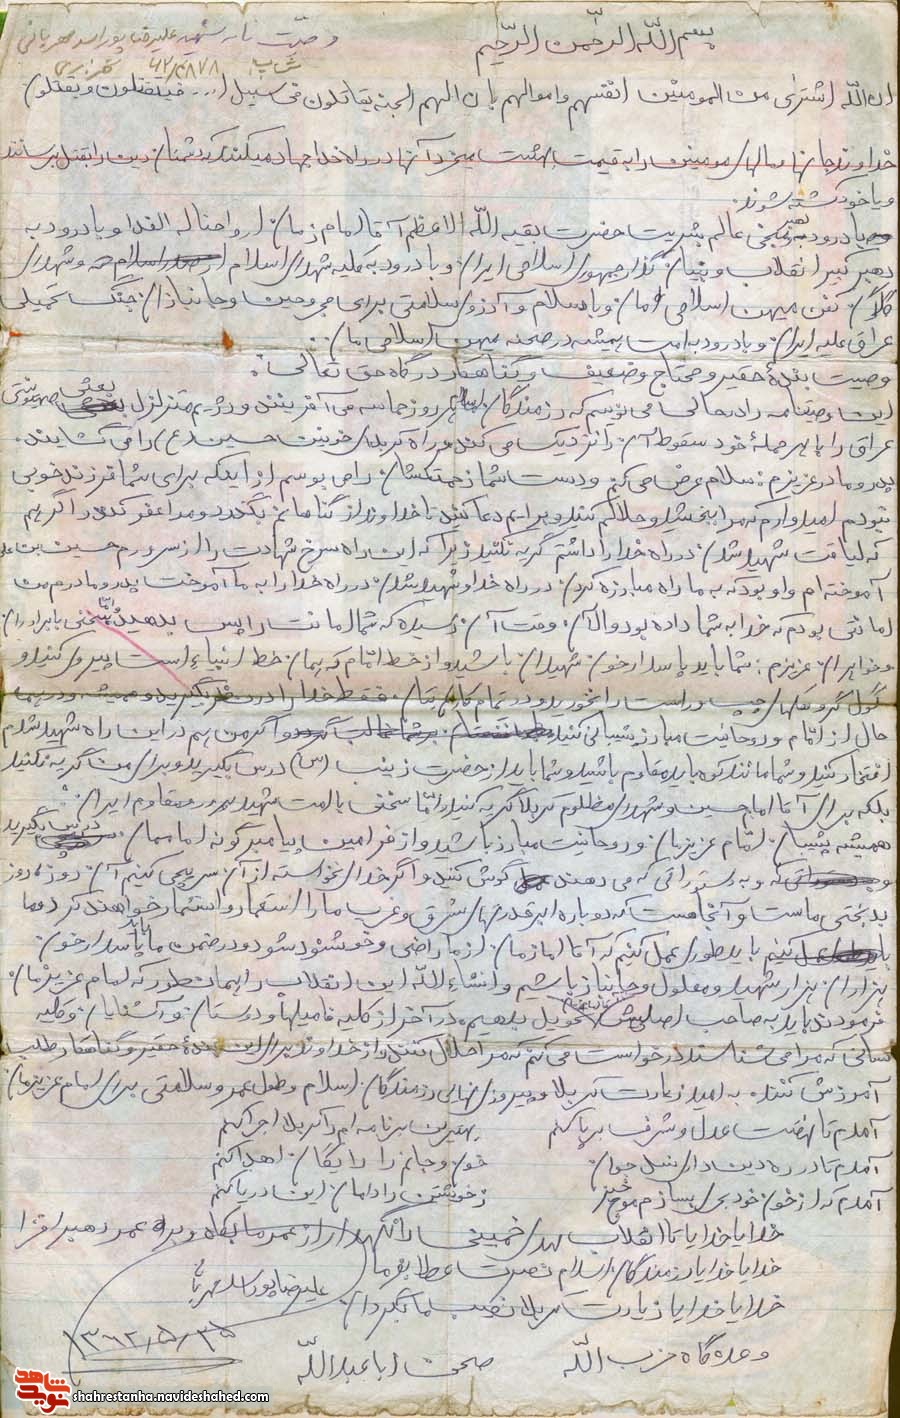 وصیت نامه شهید علیرضا پوراسد مهربانی
۶۲/۵۸۷۸
بسم اللّه الرّحمن الرّحیم
ان اللّه اشتری من المومنین انفسهم و اموالهم بان لهم الجنه یقاتلون فی سبیل ا... فیقتلون و یقتلون
خداوند جانها و مالهای مومنین را به قیمت بهشت میخرد آنها در راه خدا جهاد میکنند که دشمنان دین را بقتل برسانند
و یا خود کشته شوند.
با درود به رهبر عالم بشریت حضرت بقیه اللّه الاعظم آقا امام زمان ارواحنا له الفدا و با درود به
رهبر کبیر انقلاب و بنیان گذار جمهوری اسلامی ایران و با درود به کلیه شهدای اسلام از صدر اسلام و شهدای
گلگون کفن میهن اسلامی امان و با سلام و آرزوی سلامتی برای مجروحین و جانبازان جنگ تحمیلی
عراق علیه ایران و با درود به امت همیشه در صحنه میهن اسلامی مان.
وصیت بنده حقیر و محتاج و ضعیف و گناهکار درگاه حق تعالی:
این وصیتنامه را در حالی می نویسم که رزمندگان اسلام هر روز حماسه می آفرینند و رژیم متزلزل بعثی صهیونیستی
عراق را با هر حمله خود سقوط آن را نزدیک می کنند و راه کربلای خونین حسین (ع) را می گشایند.
پدر و مادر عزیزم: سلام عرض می کنم و دست شما زحمتکشان را می بوسم از اینکه برای شما فرزند خوبی
نبودم امیدوارم که مرا ببخشید و حلالم کنید و برایم دعا کنید تا خداوند از گناهانم بگذرد و مرا عفو کند و اگر هم
که لیاقت شهید شدن در راه خدا را داشتم گریه نکنید زیرا که این راه سرخ شهادت را از سرورم حسین بن علی
آموخته ام و او بود که به ما راه مبارزه کردن در راه خدا و شهید شدن در راه خدا را به ما آموخت پدر و مادرم من
امانتی بودم که خدا به شما داده بود و الآن وقت آن رسیده که شما امانت را پس بدهید و اما سخنی با برادران
و خواهران عزیزم: شما باید پاسدار خون شهیدان باشید و از خط امام که همان خط انبیاء است پیروی کنید و
گول گروهکهای چپ و راست را نخورید و در تمام کارهایتان فقط خدا را در نظر بگیرید و همیشه و در همه
حال از امام و روحانیت مبارز پشتیبانی کنید و اگر من هم در این راه شهید شدم
افتخار کنید و شما مانند کوه باید مقاوم باشید و شما باید از حضرت زینب (س) درس بگیرید و برای من گریه نکنید
بلکه برای آقا امام حسین و شهدای مظلوم کربلا گریه کنید و اما سخنی با امت شهید پرور و مقاوم ایران:
همیشه پشتیبان امام عزیزمان و روحانیت مبارز باشید و از فرامین پیامبر گونه اماممان درس بگیرید
و به دستوراتی که می دهند گوش کنید و اگر خدای نخواسته از آن سرپیچی کنیم آن روز، روز
بدبختی ماست و آنجاست که دوباره ابرقدرتهای شرق و غرب ما را استعمار و استثمار خواهند کرد و ما
باید طوری عمل کنیم که آقا امام زمان از ما راضی و خوشنود شود و در ضمن ما باید پاسدار خون
هزاران هزار شهید و معلول و جانباز باشیم و انشاء اللّه این انقلاب را همانطور که امام عزیزمان
فرمودند باید به صاحب اصلیش تحویل بدهیم. در آخر از کلیه فامیلها و دوستان و آشنایان و کلیه
کسانی که مرا می شناسند درخواست می کنم که مرا حلال کنند و از خداوند برای این بنده حقیر و گناهکار طلب
آمرزش کنند. به امید زیارت کربلا و پیروزی نهایی رزمندگان اسلام و طول عمر و سلامتی برای امام عزیزمان
آمدم تا نهضت عدل و شرف برپا کنم بهترین برنامه ام را کربلا اجرا کنم
آمدم تا در ره دین دارای نسل جوان خون و جانم را رایگان اهدا کنم
آمدم که از خون خود بحری بسازم موج خیز زخویشتن را دامان این دریا کنم
خدایا خدایا تا انقلاب مهدی خمینی را نگهدار از عمر ما بکاه و بر عمر رهبر افزا
خدایا خدایا رزمندگان اسلام نصرت عطا بفرما
خدایا خدایا زیارت کربلا نصیب ما بگردان
علیرضا پوراسد مهربانی
۱۳۶۲/۵/۲۵
وعده گاه حزب اللّه صحن اباعبداللّه
شاهد
نوید
shahrestanha.navideshahed.com